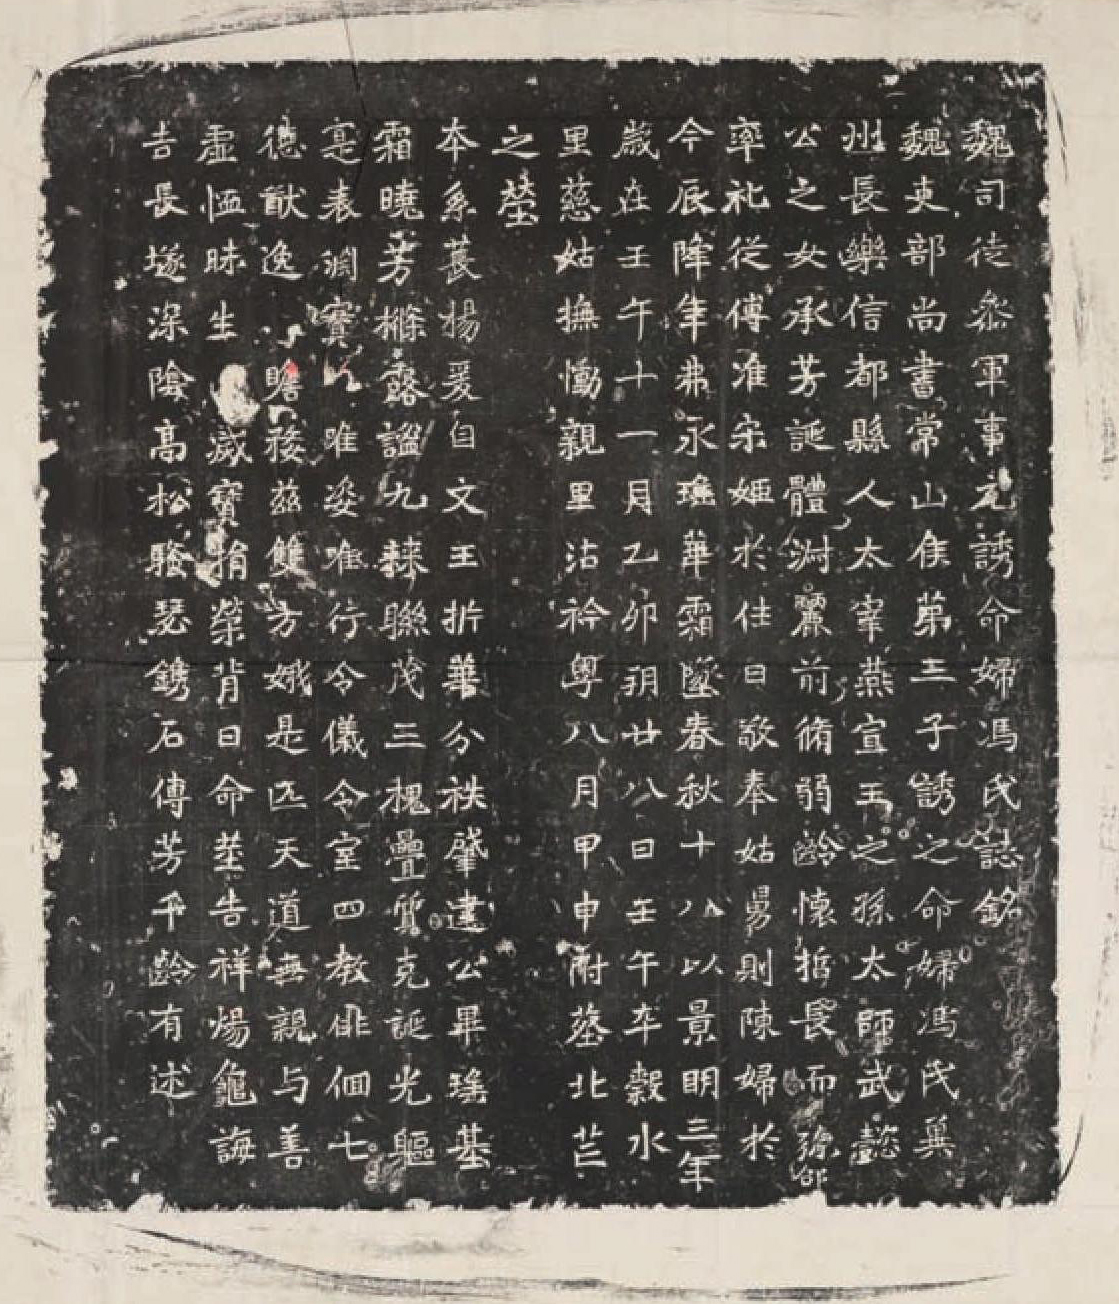 魏司徒叅軍事元誘命婦馮氏誌銘
魏吏部尚書常山侯苐三子誘之命婦馮氏兾
州長樂信都縣人太宰燕宣王之孫太師武懿
公之女承芳誕體渊麗前脩弱齡懷哲長而
率礼從傅准宋姬於佳日敬奉姑舅則陳婦於
今辰降年弗永瑤華霜墜春秋十八以景明三年
歲在壬午十一月乙卯朔廿八日壬午卒穀水
里慈姑撫慟親里沾衿粤八月甲申祔塟北芒
之塋
本系萇楊爰自文王折華分袟肇建公畢瑤基
霜曉芳樤露謐九棘聯茂三槐疊質克誕光軀
寔表渊寶 唯姿唯行令儀令室四教俳佪七
德猷逸 瞻稜兹雙方娥是匹天道無親与善
虛恤昧生 滅寶捐榮背日命塟告祥煬龜誨
吉長埏深陰高松騷瑟鐫石傳芳千齡有述